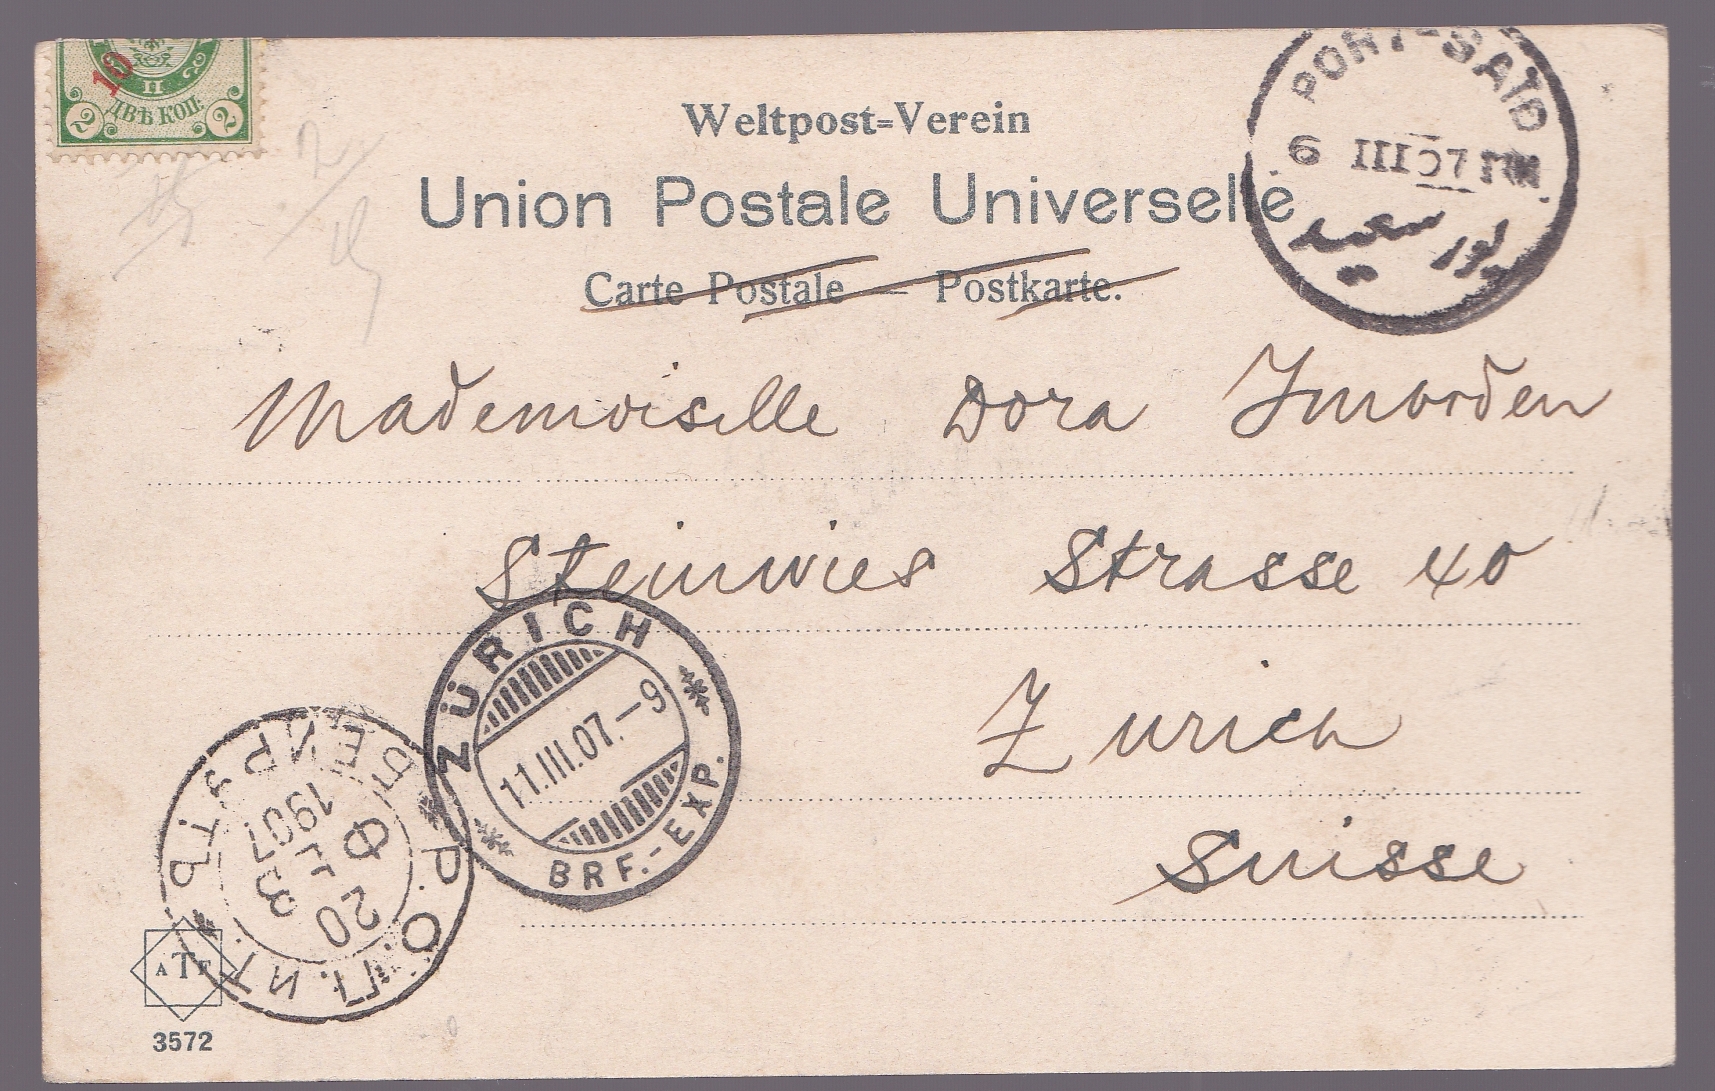 10
II
ДВѢ КОП.
2 2
Weltpost=Verein
Union Postale Universelle
Carte Postale — Postkarte.
PORT-SAÏD
6 III 07
بور سعيد
Mademoiselle Dora Imorden
Steinwies Strasse 40
Zurich
Suisse
ZÜRICH
11.III.07.–9
BRF.-EXP.
Р.О.П.иТ.
БЕЙРУТЪ
20
3
1907
ATF
3572